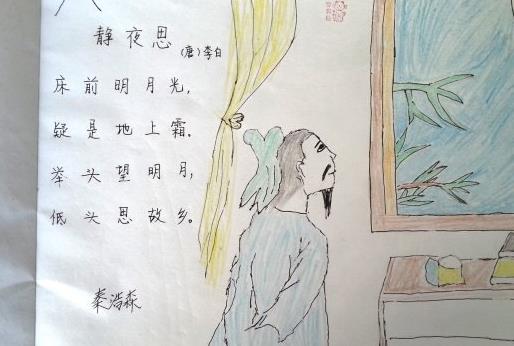 静夜思
(唐)李白
床前明月光，
疑是地上霜.
举头望明月，
低头思故乡。
秦浩森